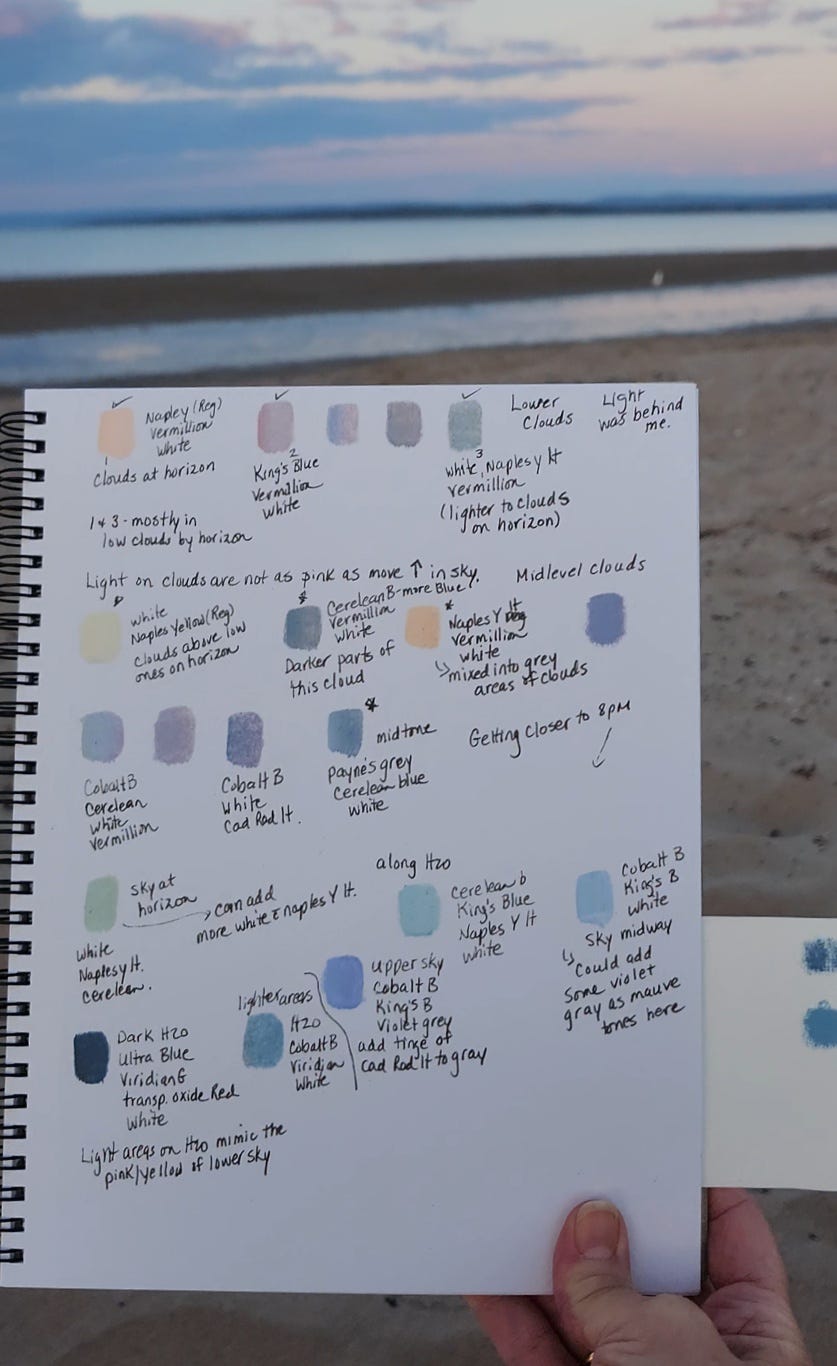 Napley (Reg)
Vermillion
White
1
Clouds at horizon
2
King's Blue
Vermillion
White
3
White, Naples y lt
Vermillion
(lighter to clouds
on horizon)
Lower
Clouds
Light
was behind
me.
1 & 3 - mostly in
low clouds by horizon
Light on clouds are not as pink as move ↑ in sky.
Midlevel clouds
White
Naples Yellow (Reg)
Clouds above low
ones on horizon
Cerelean B - more Blue
Vermillion
White
Darker parts of
this cloud
Naples Y lt
Vermillion
White
mixed into grey
areas of clouds
Cobalt B
Cerelean
White
Vermillion
Cobalt B
White
Cad Rad lt.
midtone
Payne's grey
Cerelean blue
White
Getting closer to 8pm
Sky at
horizon
can add
more white & naples Y lt.
White
Naples y lt.
Cerelean.
along H20
Cerelean b
King's Blue
Naples Y lt
White
Cobalt B
King's B
White
Sky midway
Could add
Some violet
gray as mauve
tones here
Dark H20
Ultra Blue
Viridian G
transp. oxide Red
White
lighter areas
H20
Cobalt B
Viridian
White
Upper sky
Cobalt B
King's B
Violet grey
add tinge of
Cad Rad lt to gray
Light areas on H20 mimic the
pink/yellow of lower sky